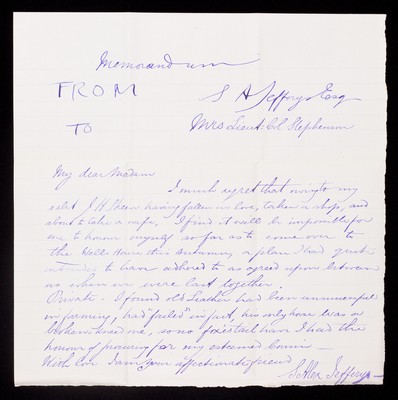 Memorandum
FROM
S A Jefferys Esq
TO
Mrs Lieut Col Stephenson
My dear Madam
I much regret that owing to my
valet J. H. having fallen in love, taken a shop, and
about to take a wife, I find it will be impossible for
me to honour myself so far as to come over to
the Hall House this autumn, a plan I had quite
intended to have adhered to as agreed upon between
us when we were last together.
Private - I found old had been unsuccessful
in farming, had "failed" in fact, his only horse was a
so no foxes tail have I had the
honour of procuring for my esteemed
With love I am your affectionate friend
S Alex Jefferys